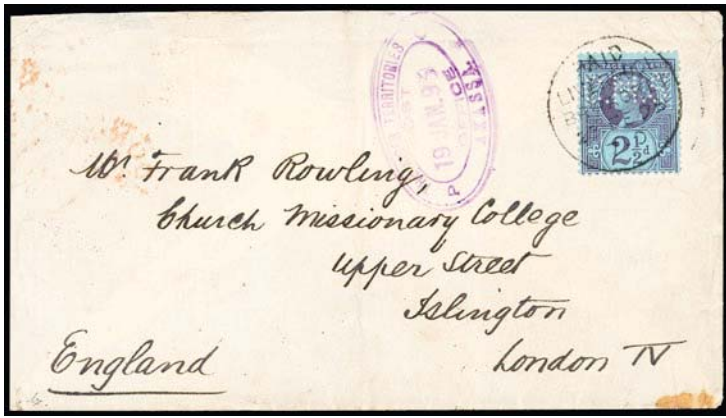 TERRITORIES
POST OFFICE
19 JAN. 95
AKASSA
PAID
2½d
Mr Frank Rowling,
Church Missionary College
Upper Street
Islington
London N
England